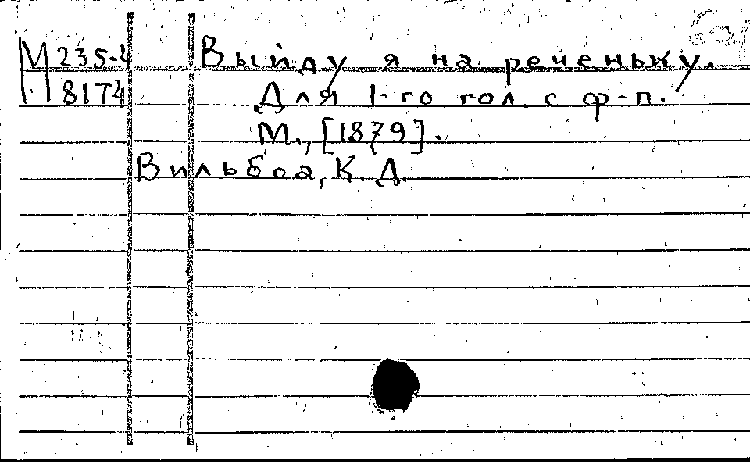 М 235-4 Выйду я на реченьку.
8174 Для 1-го гол. с ф-п.
М., [1879].
Вильбоа, К. Д.